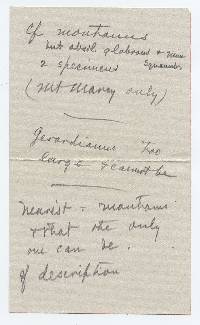 Cf montanus
but absol. glabrous &
squamules
2 specimens
(Mt Marcy only)
Gerardianus too
large & cannot be
nearest = montanus
& that the only
one can be.
of description